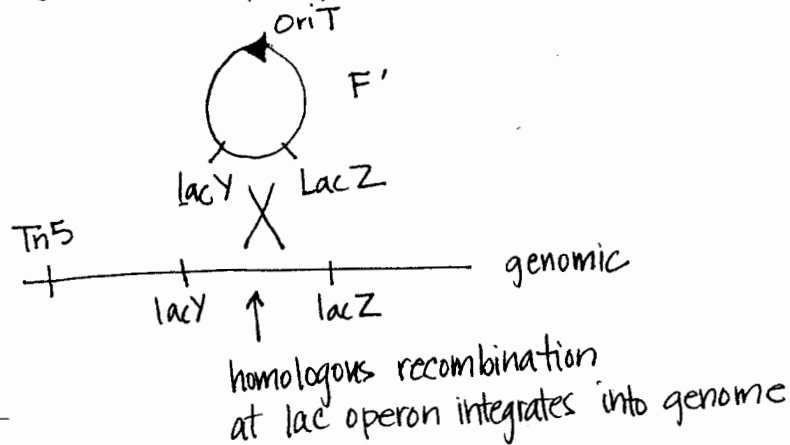 OriT
F'
lacY LacZ
Tn5
genomic
lacY lacZ
homologous recombination
at lac operon integrates into genome